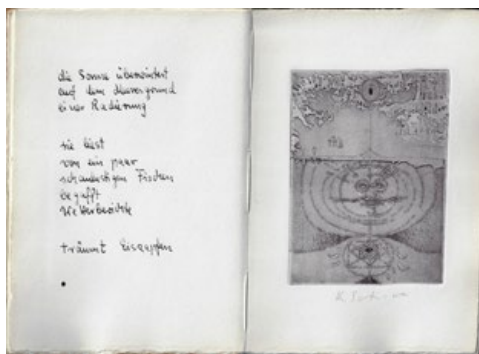 die Sonne überwintert
auf dem Meeresgrund
einer Radierung
sie liest
von ein paar
Fischen
begafft
Wetterberichte
träumt Eiszapfen